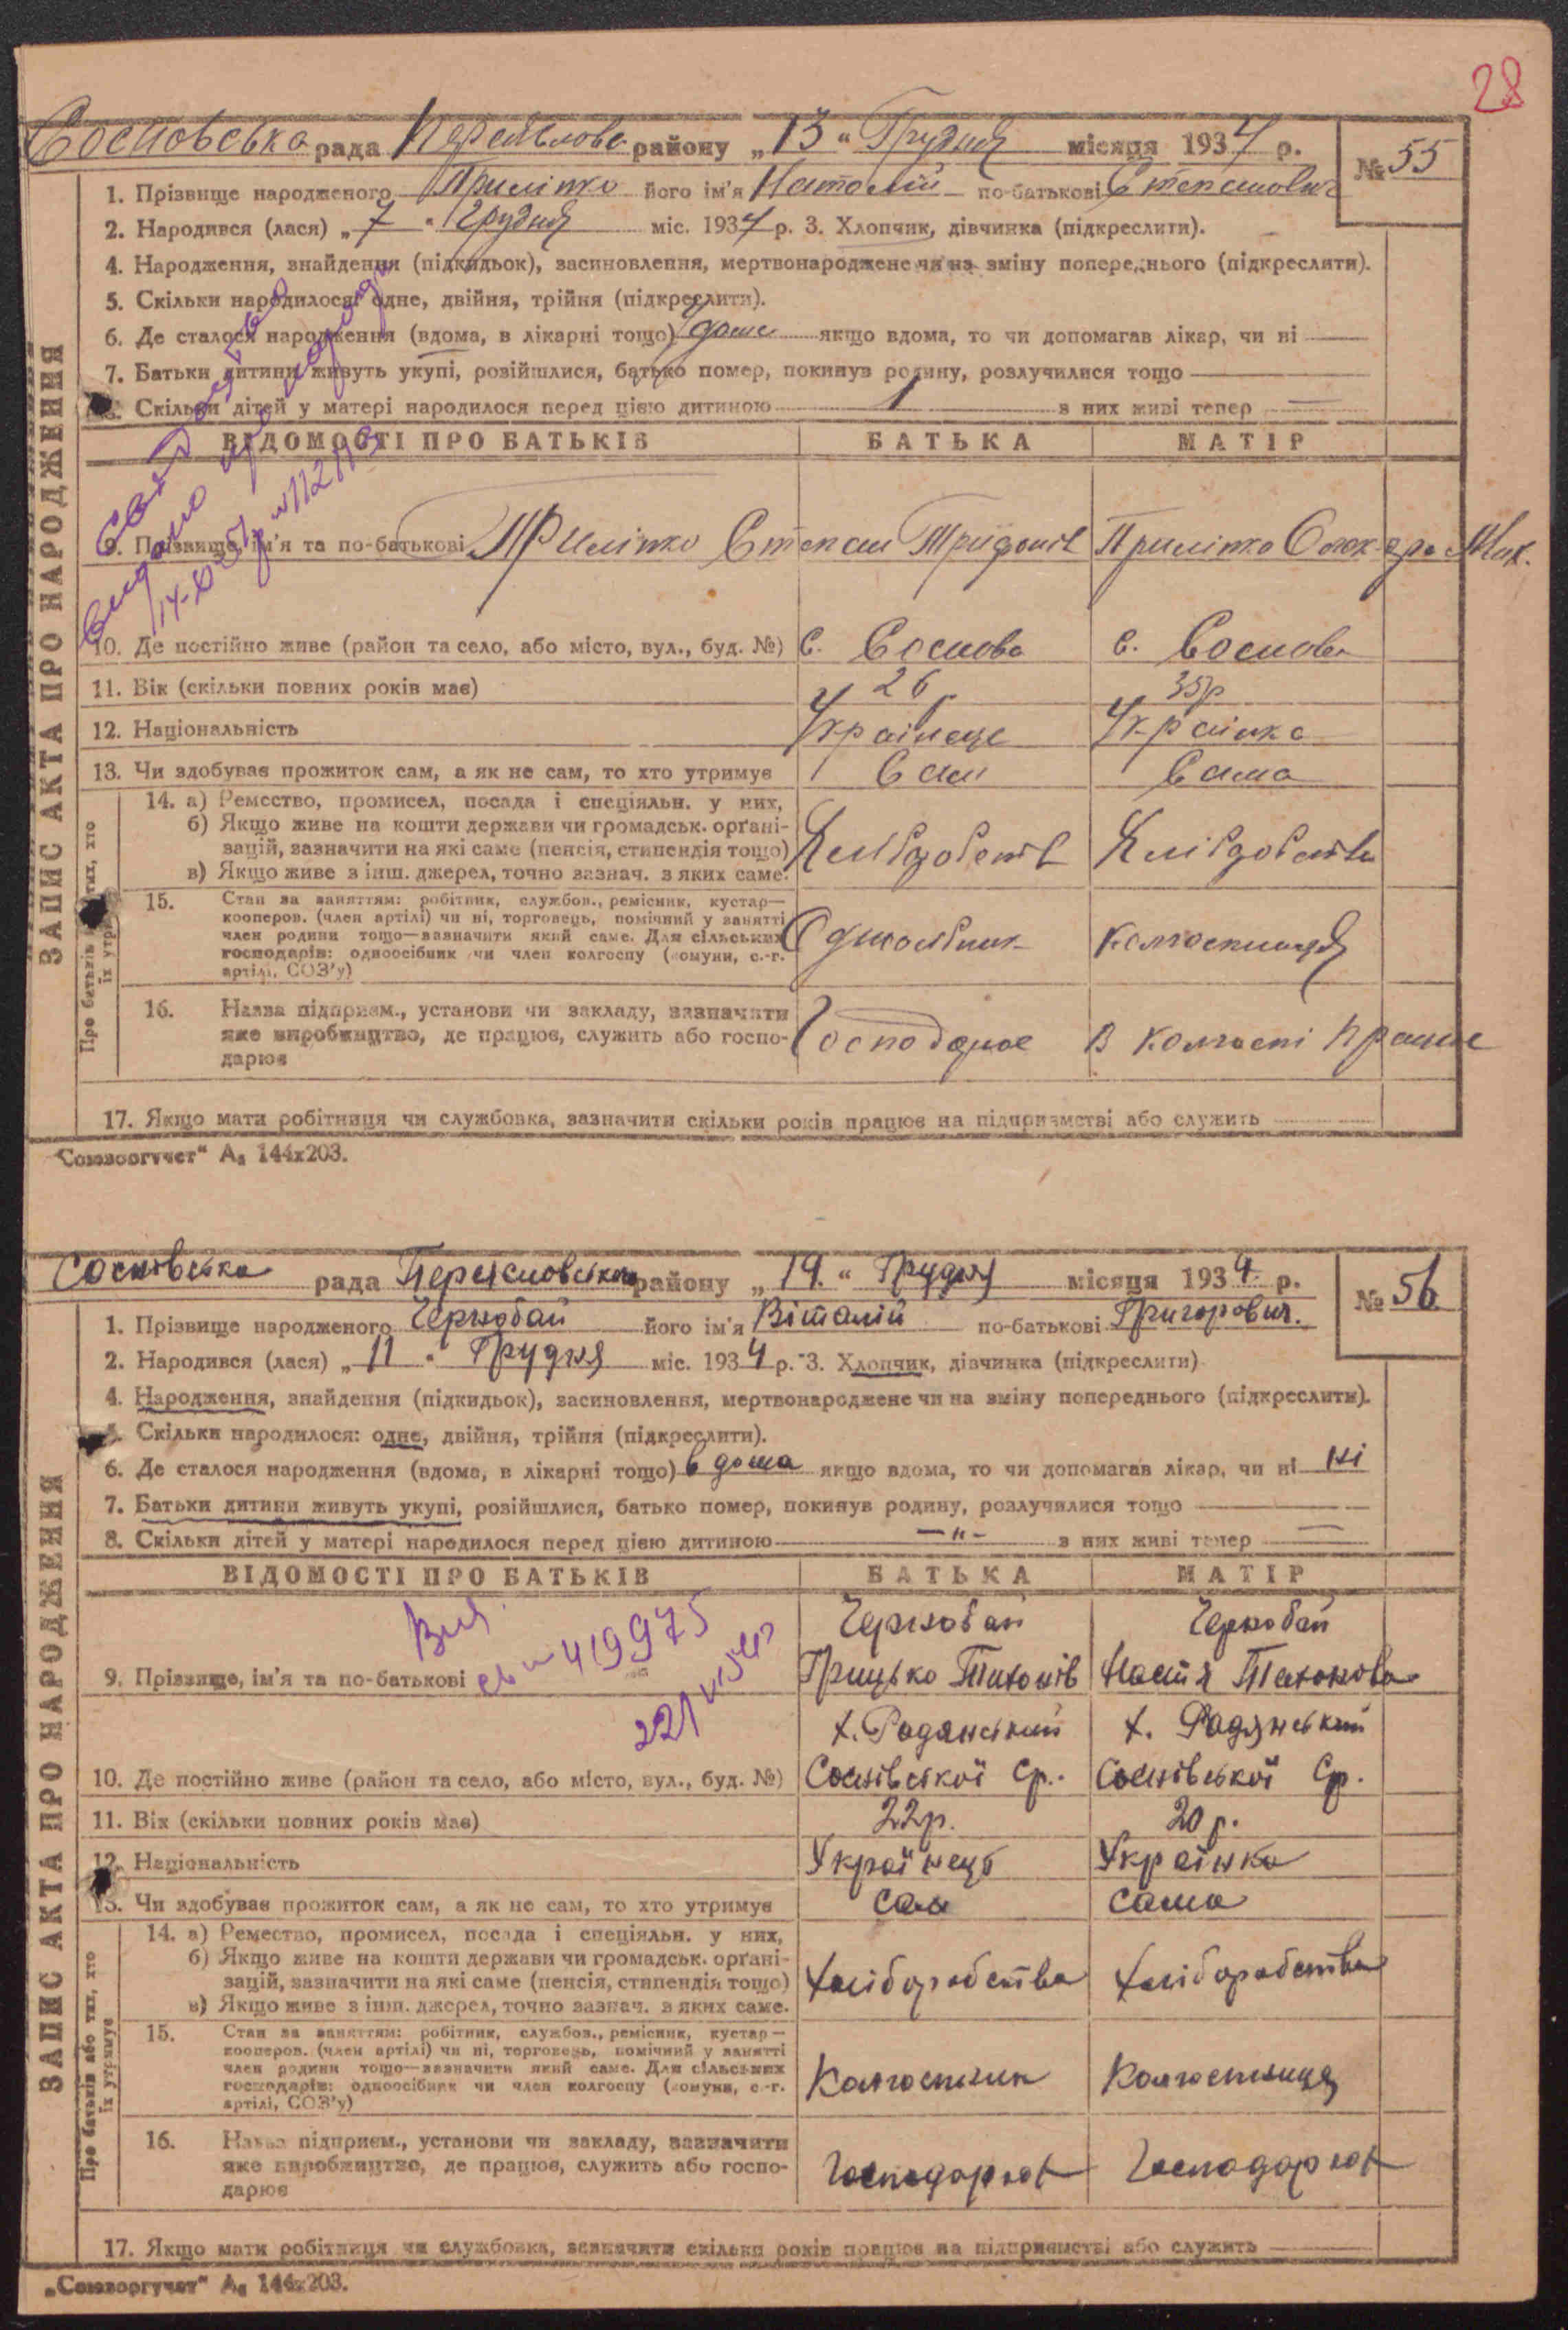 28
Сосновська рада Переяслово району „13“ Грудня місяця 1934 р.
№ 55
1. Прізвище народженого Приліпко його ім'я Натолій по-батькові Степанович
2. Народився (лася) „7“ Грудня міс. 1934 р. 3. Хлопчик, дівчинка (підкреслити).
4. Народження, знайдення (підкидьок), засиновлення, мертвонароджене чи на зміну попереднього (підкреслити).
5. Скільки народилося: одне, двійня, трійня (підкреслити).
6. Де сталося народження (вдома, в лікарні тощо) дома якщо вдома, то чи допомагав лікар, чи ні —
7. Батьки дитини живуть укупі, розійшлися, батько помер, покинув родину, розлучилися тощо —
8. Скільки дітей у матері народилося перед цією дитиною 1 з них живі тепер —
ВІДОМОСТІ ПРО БАТЬКІВ БАТЬКА МАТІР
видано
9. Прізвище, ім'я та по-батькові Приліпко Степан Трифонів Приліпко Мих.
10. Де постійно живе (район та село, або місто, вул., буд. №) С. Соснова С. Соснова
11. Вік (скільки повних років має) 26 35р
12. Національність Українець Українка
13. Чи здобуває прожиток сам, а як не сам, то хто утримує Сам Сама
14. а) Ремество, промисел, посада і спеціяльн. у них,
б) Якщо живе на кошти держави чи громадськ. орґані-
зацій, зазначити на які саме (пенсія, стипендія тощо)
в) Якщо живе з інш. джерел, точно зазнач. з яких саме.
15. Стан за заняттям: робітник, службов., ремісник, кустар—
кооперов. (член артілі) чи ні, торговець, помічний у занятті
член родини тощо—зазначити який саме. Для сільських
господарів: одноосібник чи член колгоспу (комуни, с.-г.
артілі, СОЗ'у)
Одноосібник колгоспниця
16. Назва підприєм., установи чи закладу, зазначити
яке виробництво, де працює, служить або госпо-
дарює
Господарює В колгоспі працює
17. Якщо мати робітниця чи службовка, зазначити скільки років працює на підприємстві або служить —
ЗАПИС АКТА ПРО НАРОДЖЕННЯ
Про батьків або тих, хто
їх утримує
„Союзоргучет“ А₅ 144х203.
Сосновська рада Переяславською району „19.“ Грудня місяця 1934 р.
№ 56
1. Прізвище народженого Чернобай його ім'я Віталій по-батькові Григорович.
2. Народився (лася) „11“ Грудня міс. 1934 р. 3. Хлопчик, дівчинка (підкреслити)
4. Народження, знайдення (підкидьок), засиновлення, мертвонароджене чи на зміну попереднього (підкреслити).
5. Скільки народилося: одне, двійня, трійня (підкреслити).
6. Де сталося народження (вдома, в лікарні тощо) в дома якщо вдома, то чи допомагав лікар, чи ні ні
7. Батьки дитини живуть укупі, розійшлися, батько помер, покинув родину, розлучилися тощо —
8. Скільки дітей у матері народилося перед цією дитиною —"— з них живі тепер —
ВІДОМОСТІ ПРО БАТЬКІВ БАТЬКА МАТІР
Чернобай Чернобай
419975
9. Прізвище, ім'я та по-батькові Грицько Тихонів Настя Тихонова
х. Радянський х. Радянський
10. Де постійно живе (район та село, або місто, вул., буд. №) Соснівської Ср. Соснівської Ср.
11. Вік (скільки повних років має) 22р. 20р.
12. Національність Українець Українка
13. Чи здобуває прожиток сам, а як не сам, то хто утримує сам сама
14. а) Ремество, промисел, посада і спеціяльн. у них,
б) Якщо живе на кошти держави чи громадськ. орґані-
зацій, зазначити на які саме (пенсія, стипендія тощо)
в) Якщо живе з інш. джерел, точно зазнач. з яких саме.
хліборобства хліборобства
15. Стан за заняттям: робітник, службов., ремісник, кустар—
кооперов. (член артілі) чи ні, торговець, помічний у занятті
член родини тощо—зазначити який саме. Для сільських
господарів: одноосібник чи член колгоспу (комуни, с.-г.
артілі, СОЗ'у)
Колгоспник Колгоспниця
16. Назва підприєм., установи чи закладу, зазначити
яке виробництво, де працює, служить або госпо-
дарює
Господарює Господарює
17. Якщо мати робітниця чи службовка, зазначити скільки років працює на підприємстві або служить —
ЗАПИС АКТА ПРО НАРОДЖЕННЯ
Про батьків або тих, хто
їх утримує
„Союзоргучет“ А₅ 144х203.